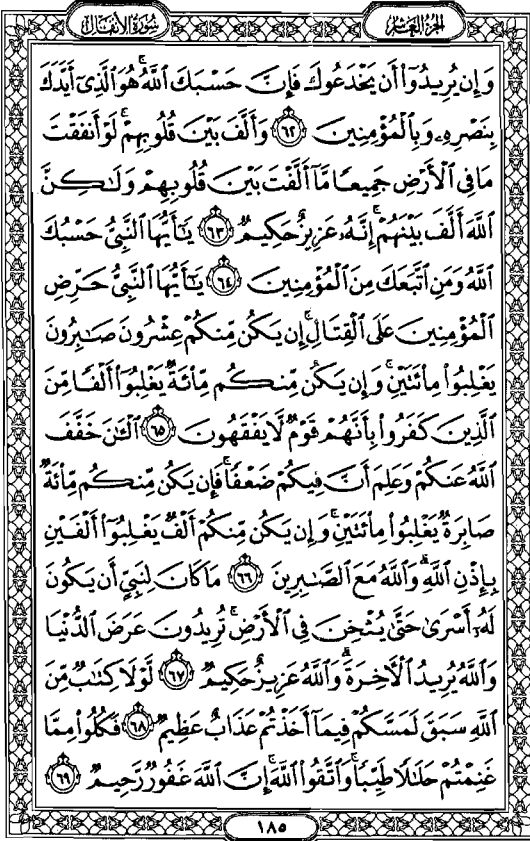 الجزء العاشر
سورة الأنفال
وَإِن يُرِيدُوٓا۟ أَن يَخْدَعُوكَ فَإِنَّ حَسْبَكَ ٱللَّهُ ۚ هُوَ ٱلَّذِىٓ أَيَّدَكَ
بِنَصْرِهِۦ وَبِٱلْمُؤْمِنِينَ ٦٢ وَأَلَّفَ بَيْنَ قُلُوبِهِمْ ۚ لَوْ أَنفَقْتَ
مَا فِى ٱلْأَرْضِ جَمِيعًا مَّآ أَلَّفْتَ بَيْنَ قُلُوبِهِمْ وَلَـٰكِنَّ
ٱللَّهَ أَلَّفَ بَيْنَهُمْ ۚ إِنَّهُۥ عَزِيزٌ حَكِيمٌ ٦٣ يَـٰٓأَيُّهَا ٱلنَّبِىُّ حَسْبُكَ
ٱللَّهُ وَمَنِ ٱتَّبَعَكَ مِنَ ٱلْمُؤْمِنِينَ ٦٤ يَـٰٓأَيُّهَا ٱلنَّبِىُّ حَرِّضِ
ٱلْمُؤْمِنِينَ عَلَى ٱلْقِتَالِ ۚ إِن يَكُن مِّنكُمْ عِشْرُونَ صَـٰبِرُونَ
يَغْلِبُوا۟ مِا۟ئَتَيْنِ ۚ وَإِن يَكُن مِّنكُم مِّا۟ئَةٌ يَغْلِبُوٓا۟ أَلْفًا مِّنَ
ٱلَّذِينَ كَفَرُوا۟ بِأَنَّهُمْ قَوْمٌ لَّا يَفْقَهُونَ ٦٥ ٱلْـَٔـٰنَ خَفَّفَ
ٱللَّهُ عَنكُمْ وَعَلِمَ أَنَّ فِيكُمْ ضَعْفًا ۚ فَإِن يَكُن مِّنكُم مِّا۟ئَةٌ
صَابِرَةٌ يَغْلِبُوا۟ مِا۟ئَتَيْنِ ۚ وَإِن يَكُن مِّنكُمْ أَلْفٌ يَغْلِبُوٓا۟ أَلْفَيْنِ
بِإِذْنِ ٱللَّهِ ۗ وَٱللَّهُ مَعَ ٱلصَّـٰبِرِينَ ٦٦ مَا كَانَ لِنَبِىٍّ أَن يَكُونَ
لَهُۥٓ أَسْرَىٰ حَتَّىٰ يُثْخِنَ فِى ٱلْأَرْضِ ۚ تُرِيدُونَ عَرَضَ ٱلدُّنْيَا
وَٱللَّهُ يُرِيدُ ٱلْـَٔاخِرَةَ ۗ وَٱللَّهُ عَزِيزٌ حَكِيمٌ ٦٧ لَّوْلَا كِتَـٰبٌ مِّنَ
ٱللَّهِ سَبَقَ لَمَسَّكُمْ فِيمَآ أَخَذْتُمْ عَذَابٌ عَظِيمٌ ٦٨ فَكُلُوا۟ مِمَّا
غَنِمْتُمْ حَلَـٰلًا طَيِّبًا ۚ وَٱتَّقُوا۟ ٱللَّهَ ۚ إِنَّ ٱللَّهَ غَفُورٌ رَّحِيمٌ ٦٩
١٨٥